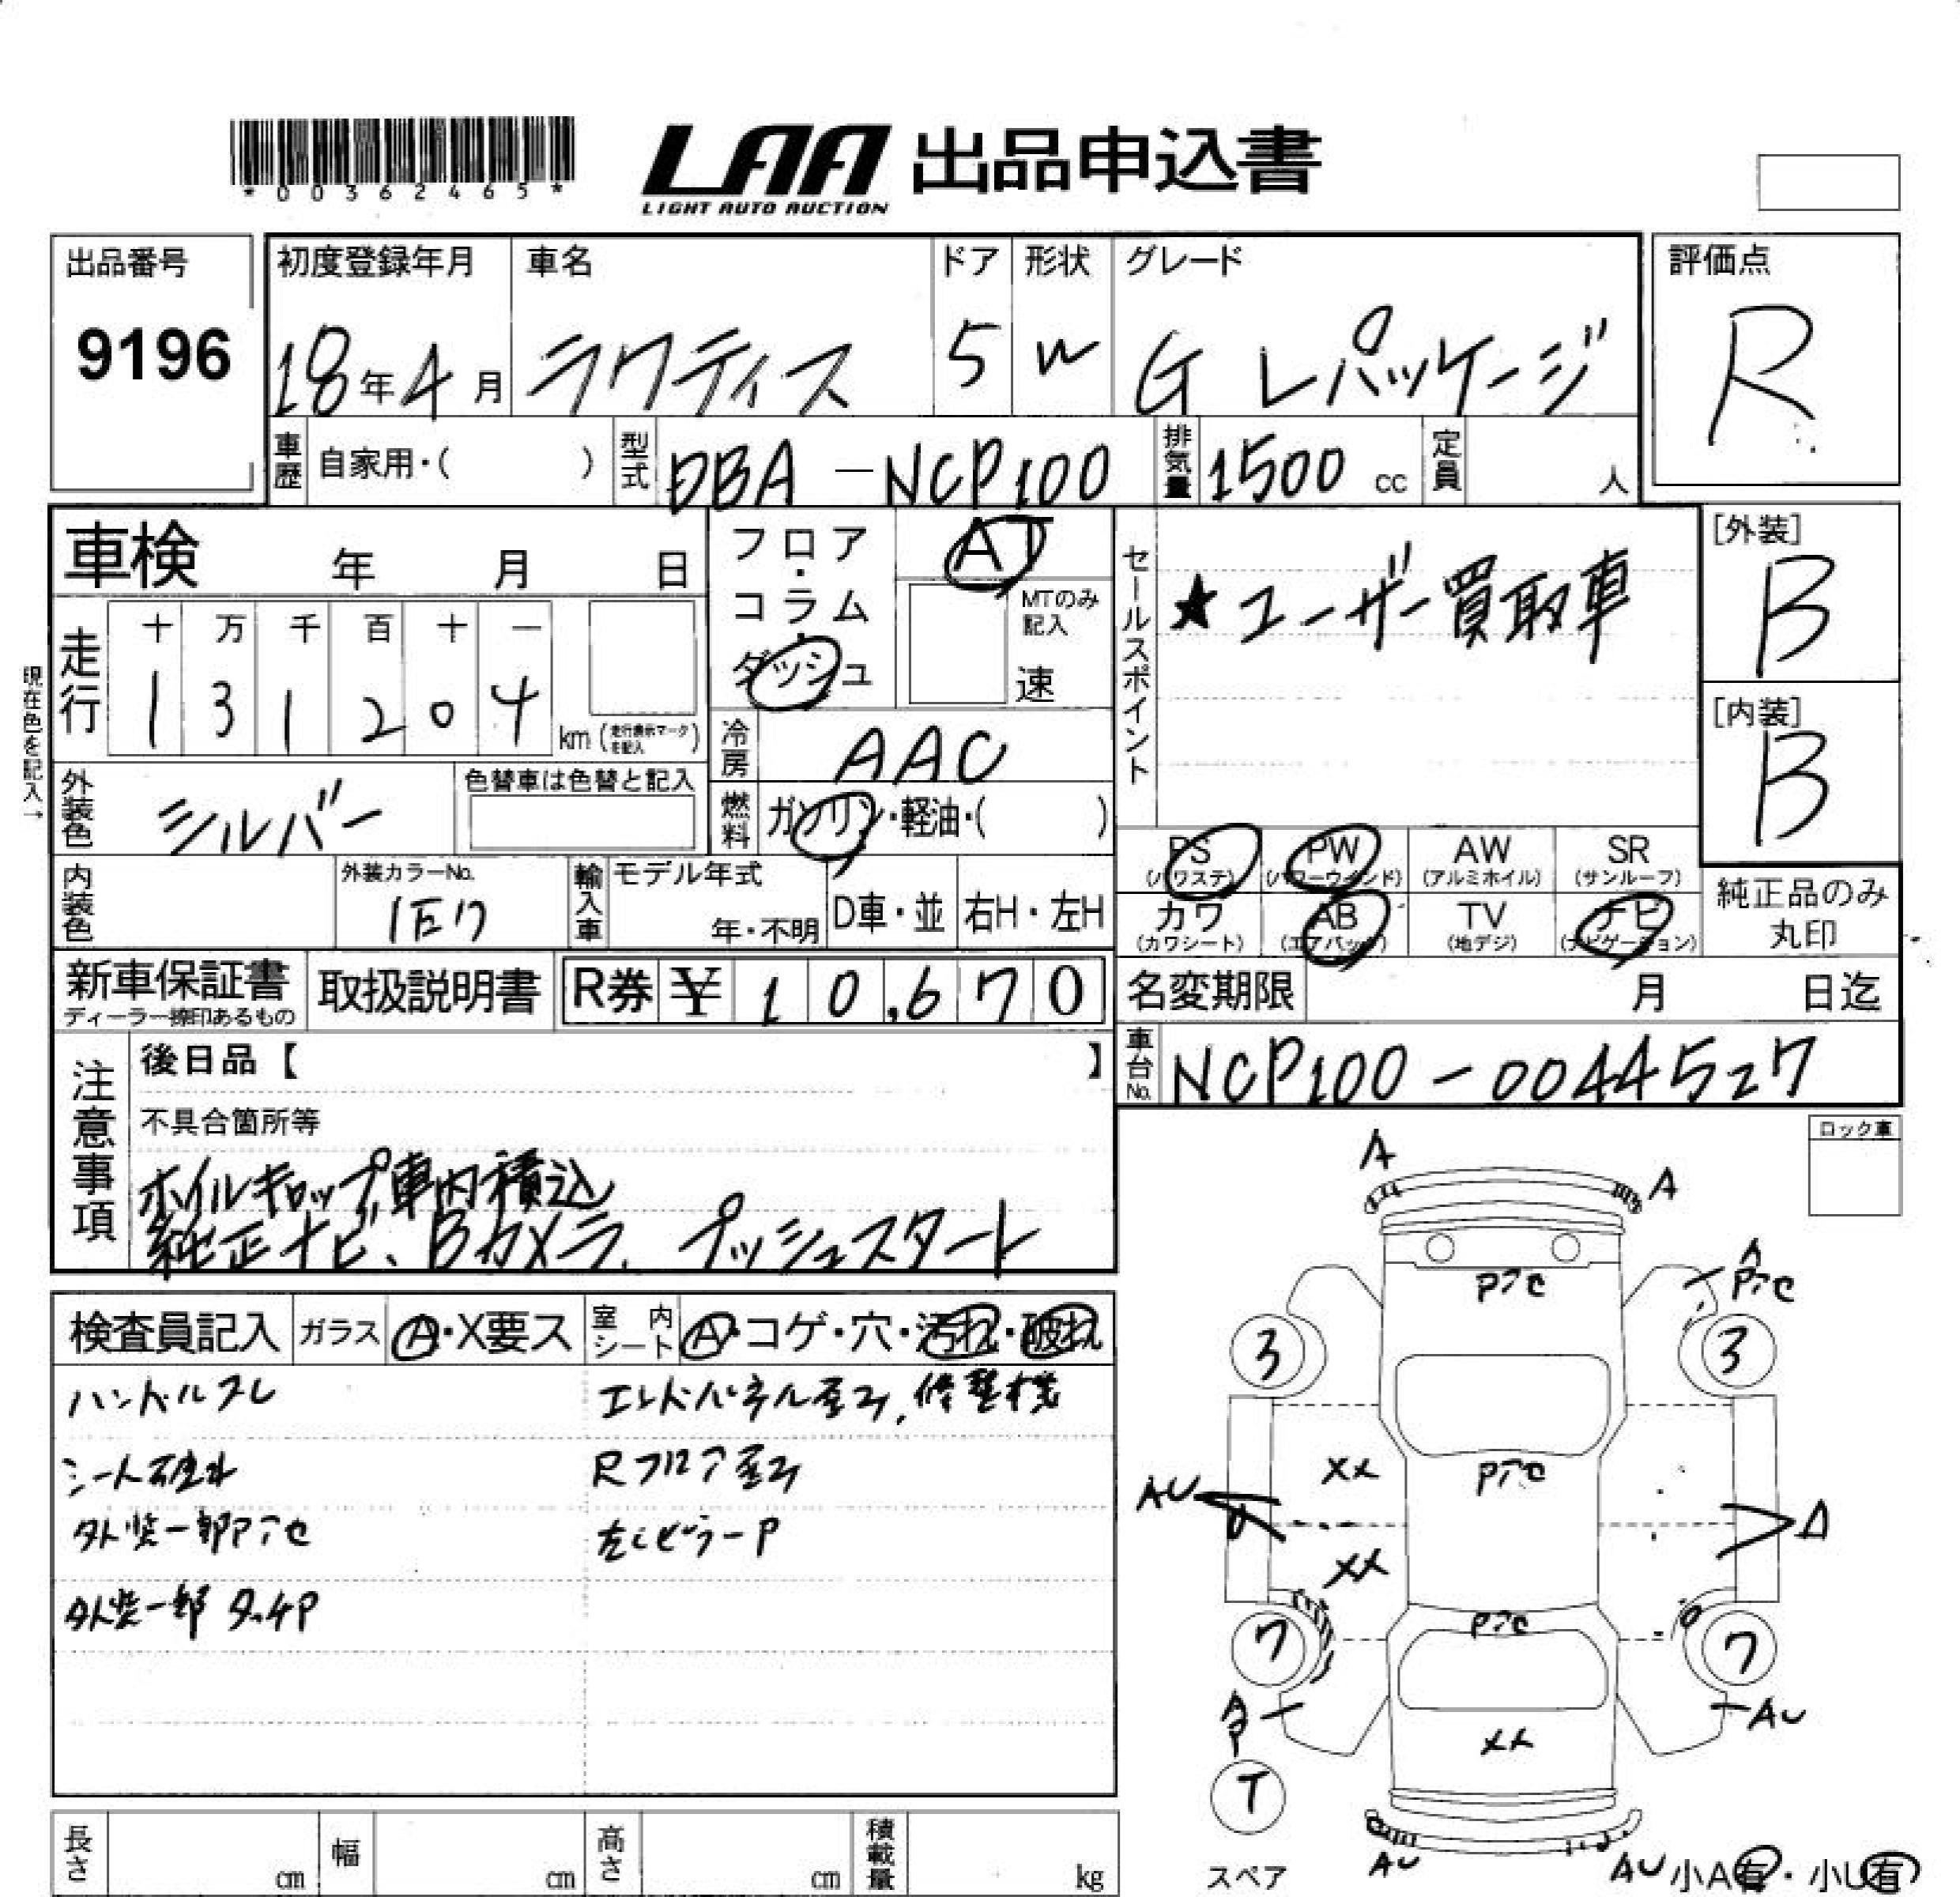 *00362465*
LAA 出品申込書
LIGHT AUTO AUCTION
出品番号 初度登録年月 車名 ドア 形状 グレード 評価点
9196 18年4月 ラクティス 5 W G Lパッケージ R
車歴 自家用・( ) 型式 DBA - NCP100 排気量 1500 cc 定員 人
車検 年 月 日 フロア・コラム・ダッシュ AT
MTのみ記入 速
セールスポイント ★ユーザー買取車
[外装] B
[内装] B
現在色を記入→
走行 十 万 千 百 十 一
1 3 1 2 0 4 km (走行表示マークを記入)
冷房 AAC
外装色 シルバー 色替車は色替と記入
燃料 ガソリン・軽油・( )
PS (パワステ) PW (パワーウインド) AW (アルミホイル) SR (サンルーフ)
カワ (カワシート) AB (エアバック) TV (地デジ) ナビ (ナビゲーション)
純正品のみ丸印
内装色 外装カラーNo. 1E7 輸入車 モデル年式 年・不明 D車・並 右H・左H
新車保証書 ディーラー捺印あるもの 取扱説明書 R券 ¥ 10,670 名変期限 月 日迄
車台No. NCP100-0044527
注意事項 後日品【 】
不具合箇所等
ホイルキャップ車内積込
純正ナビ、Bカメラ、プッシュスタート
ロック車
検査員記入 ガラス A・X要ス 室内シート A・コゲ・穴・汚れ・破れ
ハンドルスレ エンドパネル歪み,修整機
Rフロア歪み
外装一部Pアセ 左ピラーP
外装一部 タッチP
A
A
Pアセ
A Pアセ
3 3
XX Pアセ
AU A
XX
Pアセ
7 7
A P AU
XX
T
スペア AU AU 小A有・小U有
長さ cm 幅 cm 高さ cm 積載量 kg